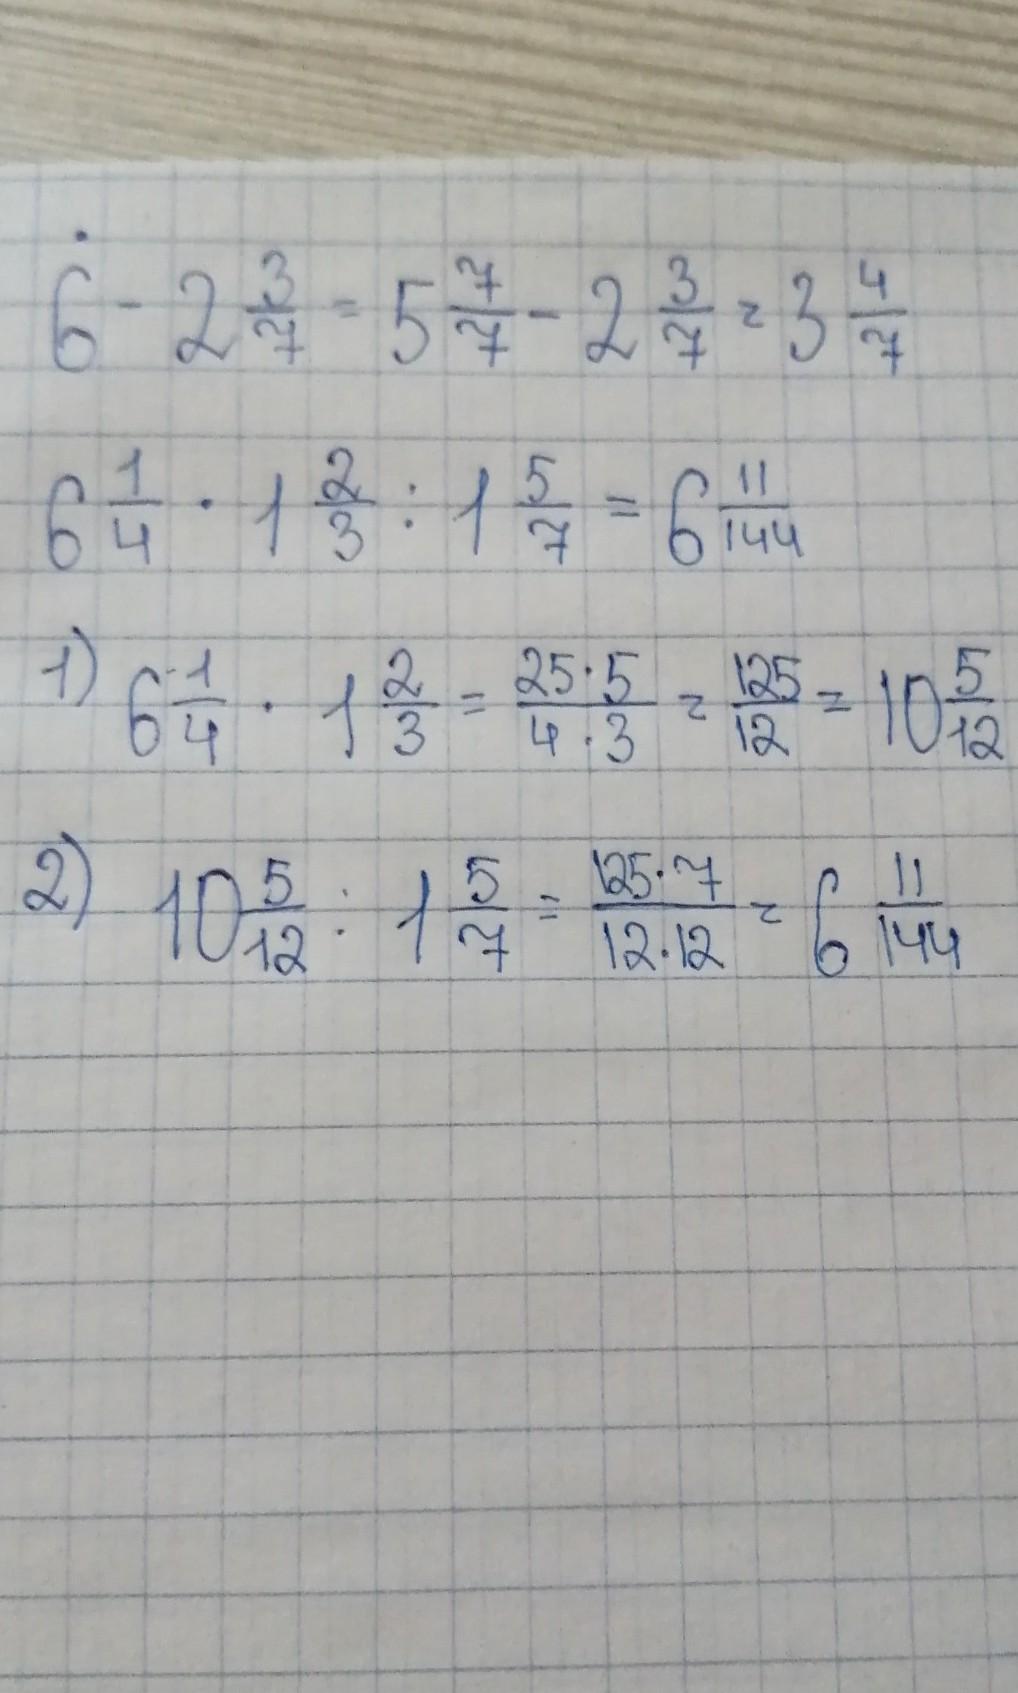 6 - 2 3/7 = 5 7/7 - 2 3/7 = 3 4/7
6 1/4 · 1 2/3 : 1 5/7 = 6 11/144
1) 6 1/4 · 1 2/3 = 25·5/4·3 = 125/12 = 10 5/12
2) 10 5/12 : 1 5/7 = 125·7/12·12 = 6 11/144